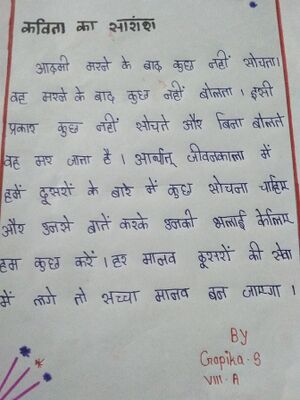 कविता का सारांश
आदमी मरने के बाद कुछ नहीं सोचता।
वह मरने के बाद कुछ नहीं बोलता। इसी
प्रकार कुछ नहीं सोचते और बिना बोलते
वह मर जाता है। अर्थात् जीवनकाल में
हमें दूसरों के बारे में कुछ सोचना चाहिए
और उनसे बातें करके उनकी भलाई केलिए
हम कुछ करें। हर मानव दूसरों की सेवा
में लगे तो सच्चा मानव बन जाएगा।
By
Gopika.S
VIII-A